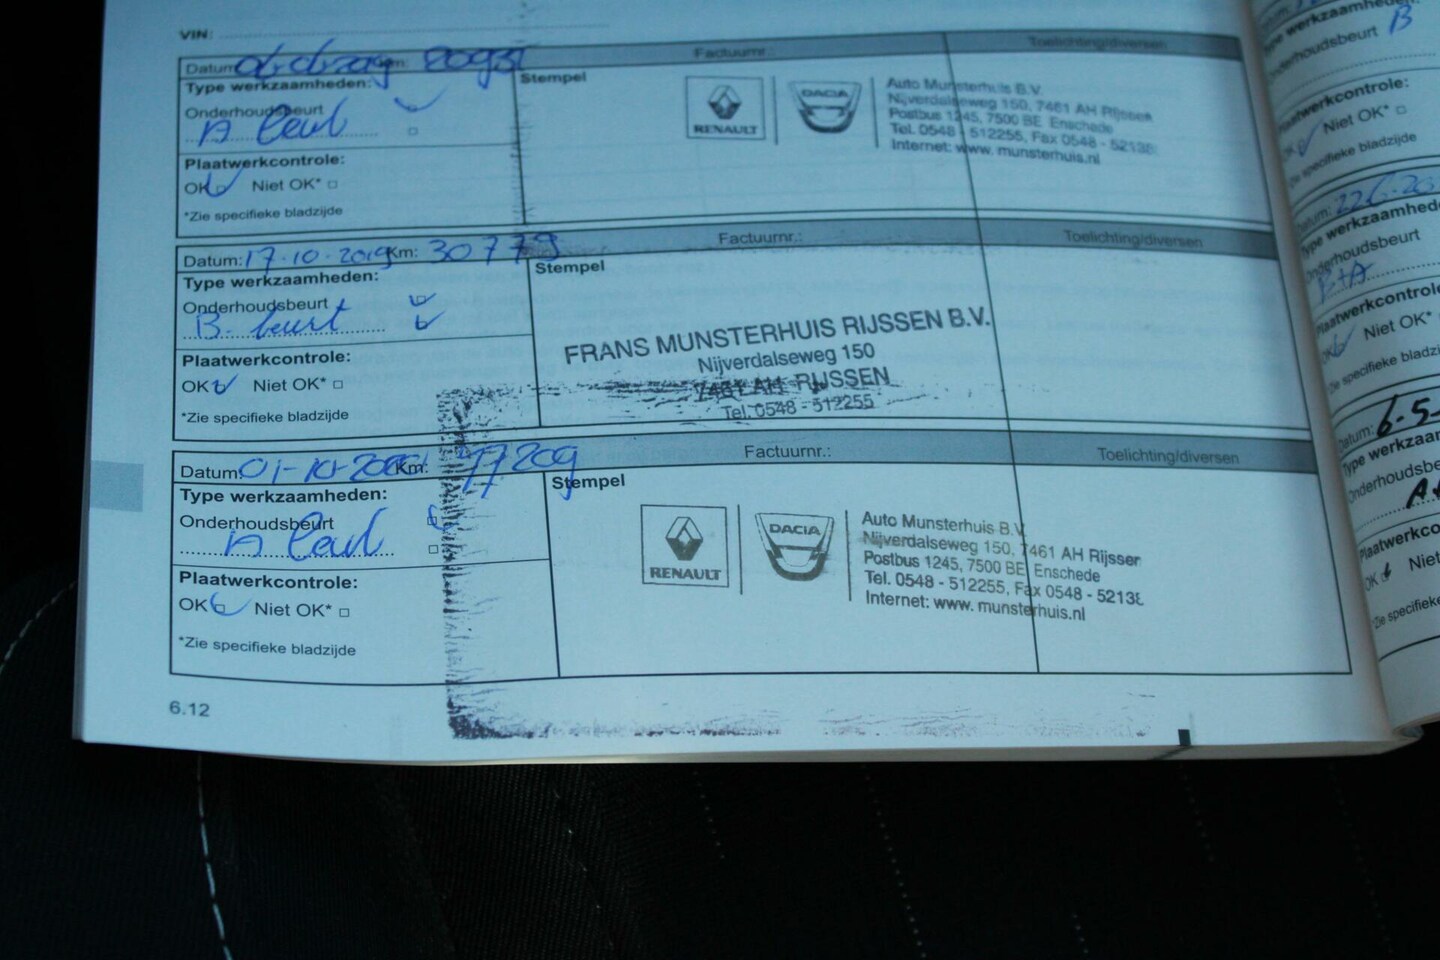 VIN:
Datum: Km: Factuurnr.: Toelichting/diversen
Type werkzaamheden:
Stempel
Onderhoudsbeurt
A beurt
Plaatwerkcontrole:
OK Niet OK*
*Zie specifieke bladzijde
RENAULT
DACIA
Auto Munsterhuis B.V.
Nijverdalseweg 150, 7461 AH Rijssen
Postbus 1245, 7500 BE Enschede
Tel. 0548 - 512255, Fax 0548 - 52138
Internet: www. munsterhuis.nl
Datum: 17-10-2019 Km: 30779 Factuurnr.: Toelichting/diversen
Type werkzaamheden:
Stempel
Onderhoudsbeurt
B- beurt
Plaatwerkcontrole:
OK Niet OK*
*Zie specifieke bladzijde
FRANS MUNSTERHUIS RIJSSEN B.V.
Nijverdalseweg 150
7461 AH RIJSSEN
Tel. 0548 - 512255
Datum: 01-10-2020 Km: Factuurnr.: Toelichting/diversen
Type werkzaamheden:
Stempel
Onderhoudsbeurt
A beurt
Plaatwerkcontrole:
OK Niet OK*
*Zie specifieke bladzijde
RENAULT
DACIA
Auto Munsterhuis B.V.
Nijverdalseweg 150, 7461 AH Rijssen
Postbus 1245, 7500 BE Enschede
Tel. 0548 - 512255, Fax 0548 - 52138
Internet: www. munsterhuis.nl
6.12
Type werkzaamheden
Onderhoudsbeurt B
Plaatwerkcontrole:
OK Niet OK*
*Zie specifieke bladzijde
Datum: 22-6-20
Type werkzaamhede
Onderhoudsbeurt
B+A
Plaatwerkcontrol
OK Niet OK*
*Zie specifieke bladzi
Datum: 6-5-
Type werkzaa
Onderhoudsbe
A+
Plaatwerkco
OK Niet
*Zie specifieke